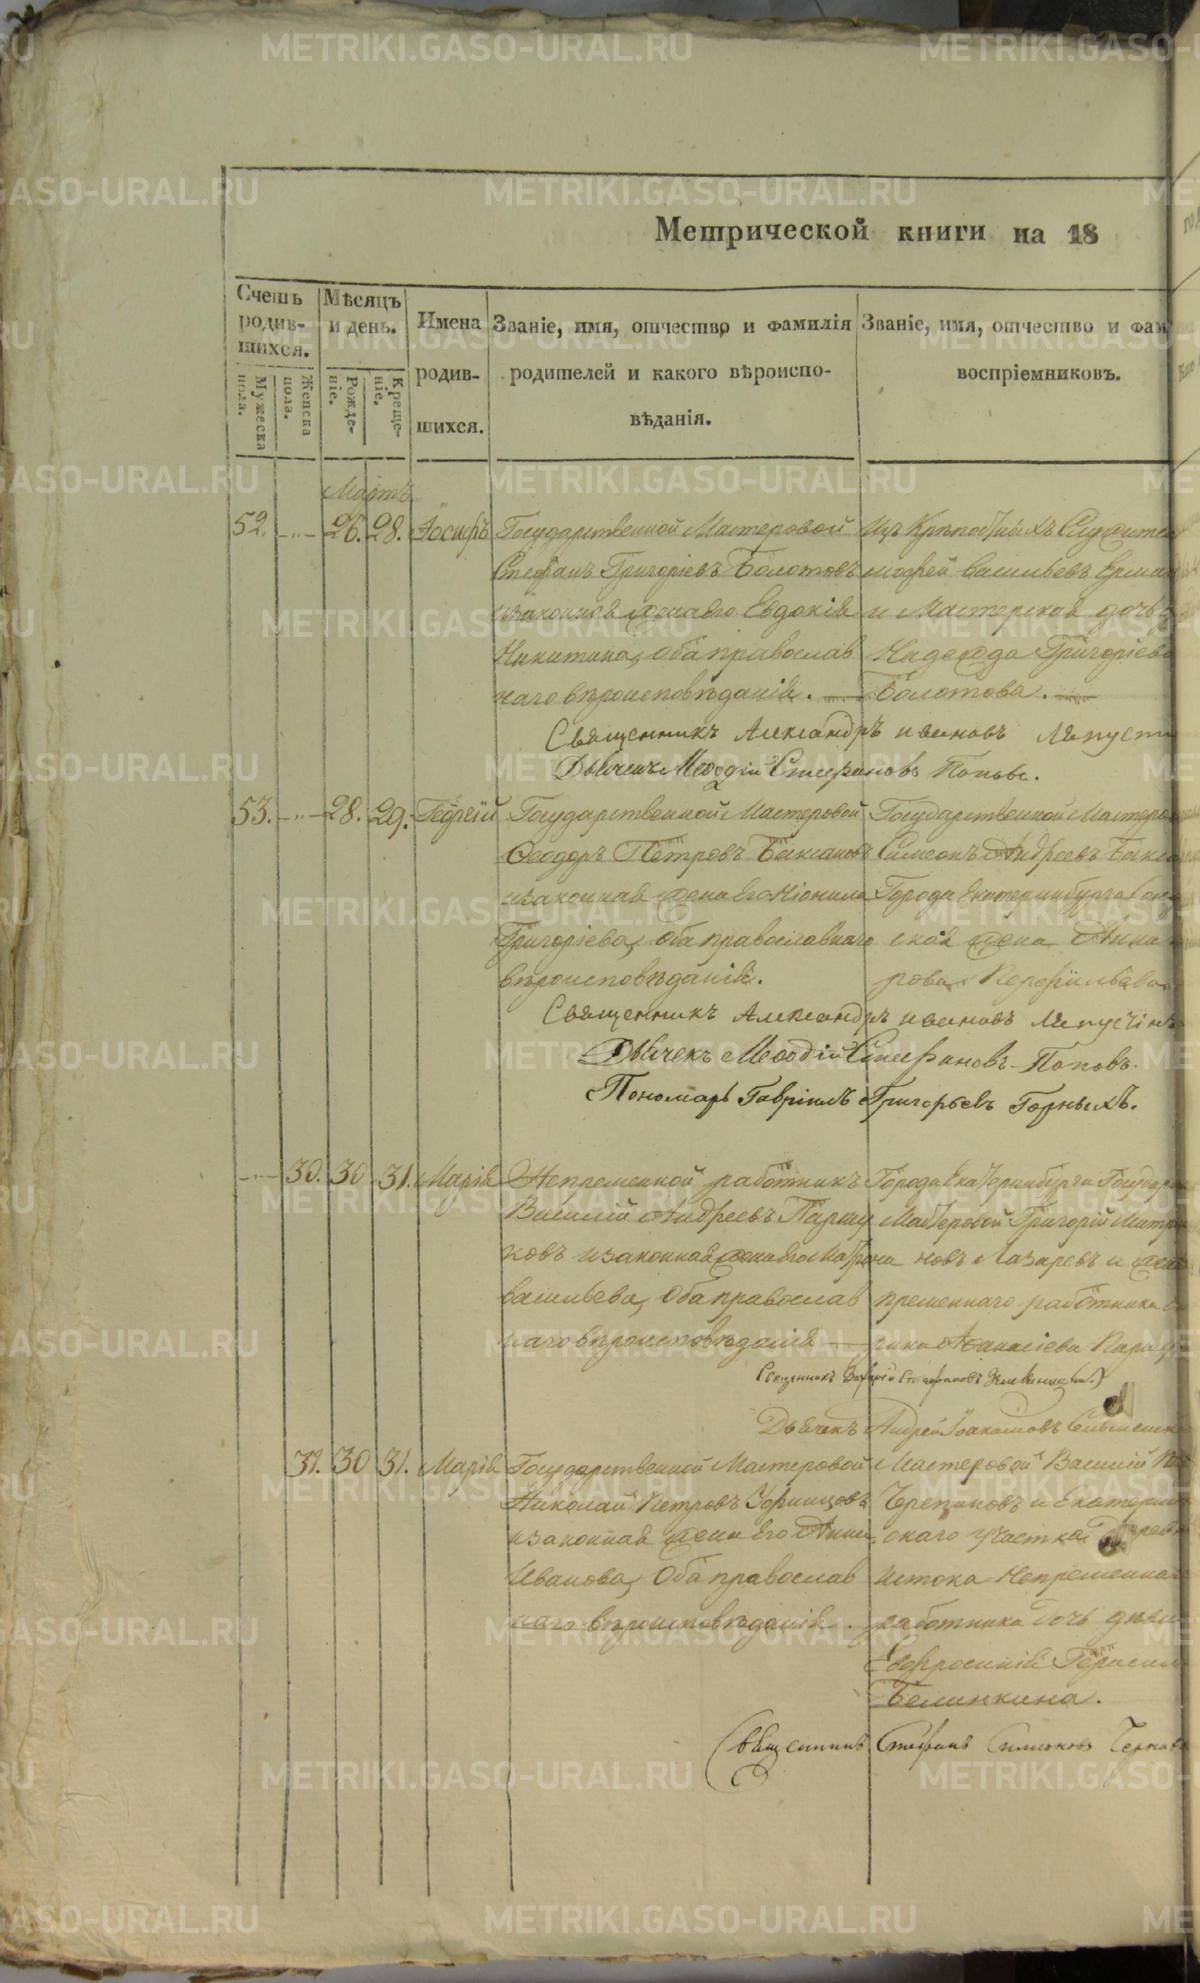 Метрической книги на 18
Счетъ родив-шихся.
Мужеска пола.
Женска пола.
Мѣсяцъ и день.
Рожде-ніе.
Креще-ніе.
Имена родив-шихся.
Званіе, имя, отчество и фамилія
родителей и какого вѣроиспо-
вѣданія.
Званіе, имя, отчество и фам
воспріемниковъ.
Мартъ
52. 26. 28. Іосифъ
Государственной Мастеровой
Стефанъ Григоріевъ Болотовъ
и законная жена его Евдокія
Никитина, оба православ
наго вѣроисповѣданія.
Изъ Крѣпостныхъ Служите
Васильевъ
и Мастерская дочь
Надежда Григоріева
Болотова.
Священникъ Александръ Ивановъ Ляпусти
Дьячекъ Меѳодій Стефановъ Поповъ.
53. 28. 29. Георгій
Государственной Мастеровой
Ѳеодоръ Петровъ
и законная жена его Неонила
Григоріева, оба православнаго
вѣроисповѣданія.
Государственной Мастеро
Симеонъ Андреевъ
Города Екатеринбурга
ская жена Анна
рова Перфильева
Священникъ Александръ Ивановъ Ляпустинъ
Дьячекъ Меѳодій Стефановъ Поповъ.
Пономарь Гавріилъ Григорьевъ Горныхъ.
30. 30 31. Марія
Непременной работникъ
Василій Андреевъ Паршу
ковъ и законная жена его Матрона
Васильева, оба православ
наго вѣроисповѣданія
Города Екатеринбурга Государ
Мастеровой Григорій Митро
новъ Лазаревъ и
пременнаго работника
Афанасіева Паршу
Священникъ Стефановъ
Дьячекъ Андрей Іоакимовъ
31. 30 31. Марія
Государственной Мастеровой
Николай Петровъ Уфинцовъ
и законная жена его Анна
Иванова, оба православ
наго вѣроисповѣданія.
Мастеровой Василій
Черепановъ и Екатерин
скаго участка
Истока Непременна
работника дочь дѣви
Евфросинія Герасим
Белинкина.
Священникъ Стефанъ Симеоновъ
METRIKI.GASO-URAL.RU